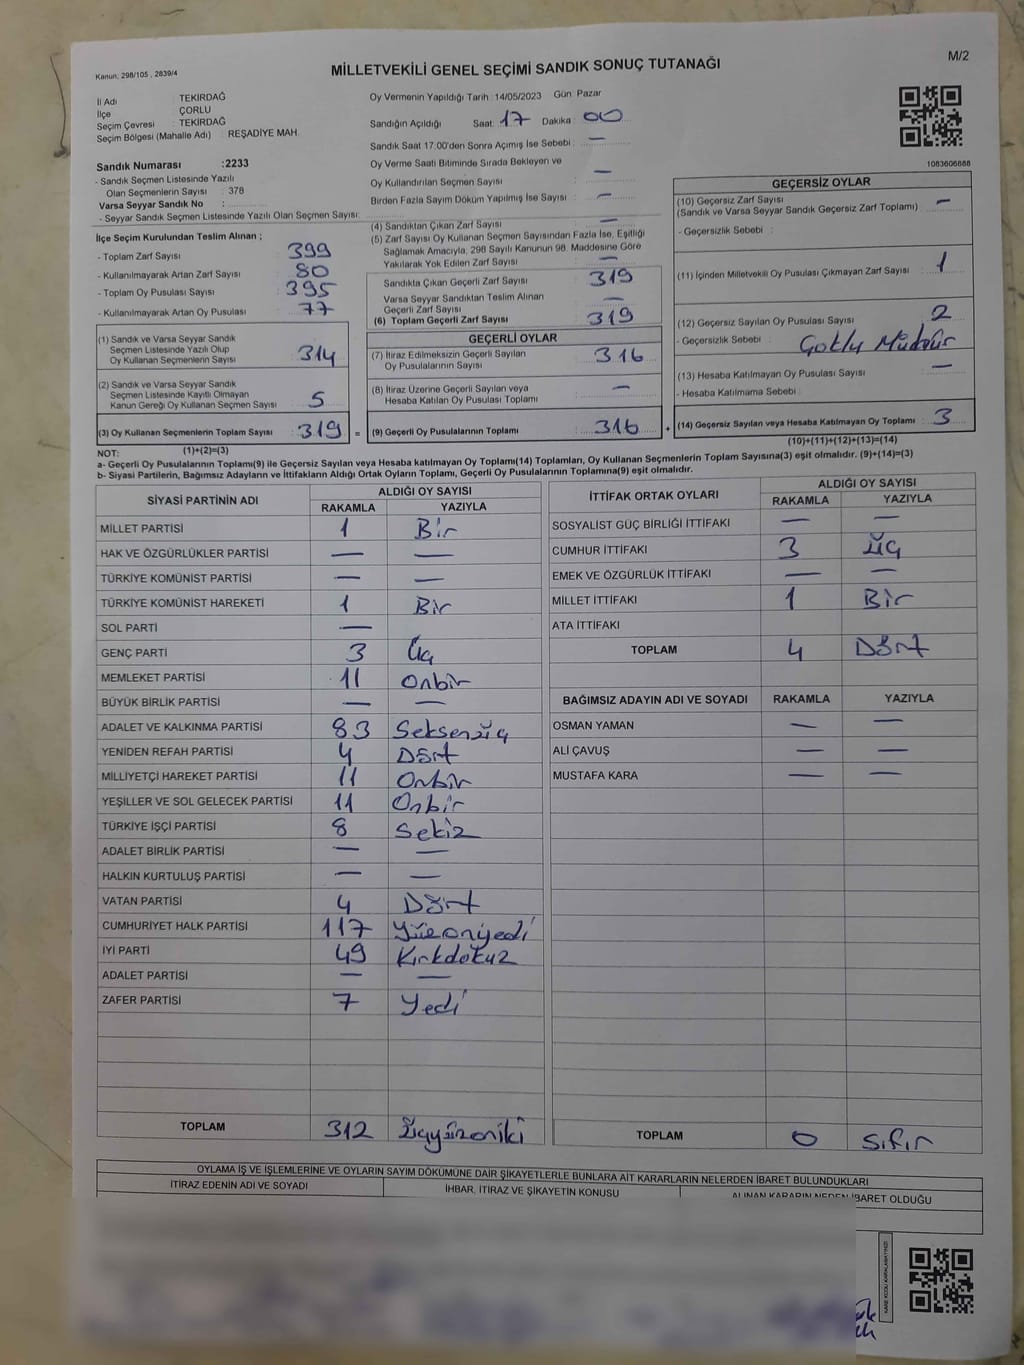 M/2
Kanun, 298/105 , 2839/4
MİLLETVEKİLİ GENEL SEÇİMİ SANDIK SONUÇ TUTANAĞI
İl Adı : TEKİRDAĞ
İlçe : ÇORLU
Seçim Çevresi : TEKİRDAĞ
Seçim Bölgesi (Mahalle Adı) : REŞADİYE MAH.
Oy Vermenin Yapıldığı Tarih :14/05/2023 Gün: Pazar
Sandığın Açıldığı Saat: 17 Dakika : 00
Sandık Saat 17:00'den Sonra Açımış İse Sebebi : —
Sandık Numarası :2233
- Sandık Seçmen Listesinde Yazılı
Olan Seçmenlerin Sayısı : 378
Varsa Seyyar Sandık No :
- Seyyar Sandık Seçmen Listesinde Yazılı Olan Seçmen Sayısı:
Oy Verme Saati Bitiminde Sırada Bekleyen ve
Oy Kullandırılan Seçmen Sayısı : —
Birden Fazla Sayım Döküm Yapılmış İse Sayısı : —
1083606888
İlçe Seçim Kurulundan Teslim Alınan ;
- Toplam Zarf Sayısı : 399
- Kullanılmayarak Artan Zarf Sayısı : 80
- Toplam Oy Pusulası Sayısı : 395
- Kullanılmayarak Artan Oy Pusulası : 77
(1) Sandık ve Varsa Seyyar Sandık
Seçmen Listesinde Yazılı Olup
Oy Kullanan Seçmenlerin Sayısı : 314
(2) Sandık ve Varsa Seyyar Sandık
Seçmen Listesinde Kayıtlı Olmayan
Kanun Gereği Oy Kullanan Seçmen Sayısı : 5
(3) Oy Kullanan Seçmenlerin Toplam Sayısı : 319 =
(1)+(2)=(3)
(4) Sandıktan Çıkan Zarf Sayısı : —
(5) Zarf Sayısı Oy Kullanan Seçmen Sayısından Fazla İse, Eşitliği
Sağlamak Amacıyla; 298 Sayılı Kanunun 98. Maddesine Göre
Yakılarak Yok Edilen Zarf Sayısı : —
Sandıkta Çıkan Geçerli Zarf Sayısı : 319
Varsa Seyyar Sandıktan Teslim Alınan
Geçerli Zarf Sayısı : —
(6) Toplam Geçerli Zarf Sayısı : 319
GEÇERLİ OYLAR
(7) İtiraz Edilmeksizin Geçerli Sayılan
Oy Pusulalarının Sayısı : 316
(8) İtiraz Üzerine Geçerli Sayılan veya
Hesaba Katılan Oy Pusulası Toplamı : —
(9) Geçerli Oy Pusulalarının Toplamı : 316 +
GEÇERSİZ OYLAR
(10) Geçersiz Zarf Sayısı : —
(Sandık ve Varsa Seyyar Sandık Geçersiz Zarf Toplamı)
- Geçersizlik Sebebi :
(11) İçinden Milletvekili Oy Pusulası Çıkmayan Zarf Sayısı : 1
(12) Geçersiz Sayılan Oy Pusulası Sayısı : 2
- Geçersizlik Sebebi :
(13) Hesaba Katılmayan Oy Pusulası Sayısı : —
- Hesaba Katılmama Sebebi :
(14) Geçersiz Sayılan veya Hesaba Katılmayan Oy Toplamı : 3
(10)+(11)+(12)+(13)=(14)
NOT:
a- Geçerli Oy Pusulalarının Toplamı(9) ile Geçersiz Sayılan veya Hesaba katılmayan Oy Toplamı(14) Toplamları, Oy Kullanan Seçmenlerin Toplam Sayısına(3) eşit olmalıdır. (9)+(14)=(3)
b- Siyasi Partilerin, Bağımsız Adayların ve İttifakların Aldığı Ortak Oyların Toplamı, Geçerli Oy Pusulalarının Toplamına(9) eşit olmalıdır.
SİYASİ PARTİNİN ADI ALDIĞI OY SAYISI
RAKAMLA YAZIYLA
MİLLET PARTİSİ 1 Bir
HAK VE ÖZGÜRLÜKLER PARTİSİ — —
TÜRKİYE KOMÜNİST PARTİSİ — —
TÜRKİYE KOMÜNİST HAREKETİ 1 Bir
SOL PARTİ —
GENÇ PARTİ 3 Üç
MEMLEKET PARTİSİ 11 Onbir
BÜYÜK BİRLİK PARTİSİ — —
ADALET VE KALKINMA PARTİSİ 83 Seksenüç
YENİDEN REFAH PARTİSİ 4 Dört
MİLLİYETÇİ HAREKET PARTİSİ 11 Onbir
YEŞİLLER VE SOL GELECEK PARTİSİ 11 Onbir
TÜRKİYE İŞÇİ PARTİSİ 8 Sekiz
ADALET BİRLİK PARTİSİ — —
HALKIN KURTULUŞ PARTİSİ — —
VATAN PARTİSİ 4 Dört
CUMHURİYET HALK PARTİSİ 117 Yüzonyedi
İYİ PARTİ 49 Kırkdokuz
ADALET PARTİSİ — —
ZAFER PARTİSİ 7 Yedi
TOPLAM 312 Üçyüzoniki
İTTİFAK ORTAK OYLARI ALDIĞI OY SAYISI
RAKAMLA YAZIYLA
SOSYALİST GÜÇ BİRLİĞİ İTTİFAKI — —
CUMHUR İTTİFAKI 3 Üç
EMEK VE ÖZGÜRLÜK İTTİFAKI — —
MİLLET İTTİFAKI 1 Bir
ATA İTTİFAKI
TOPLAM 4 Dört
BAĞIMSIZ ADAYIN ADI VE SOYADI RAKAMLA YAZIYLA
OSMAN YAMAN — —
ALİ ÇAVUŞ — —
MUSTAFA KARA — —
TOPLAM 0 Sıfır
OYLAMA İŞ VE İŞLEMLERİNE VE OYLARIN SAYIM DÖKÜMÜNE DAİR ŞİKAYETLERLE BUNLARA AİT KARARLARIN NELERDEN İBARET BULUNDUKLARI
İTİRAZ EDENİN ADI VE SOYADI İHBAR, İTİRAZ VE ŞİKAYETİN KONUSU ALINAN KARARIN NEDEN İBARET OLDUĞU